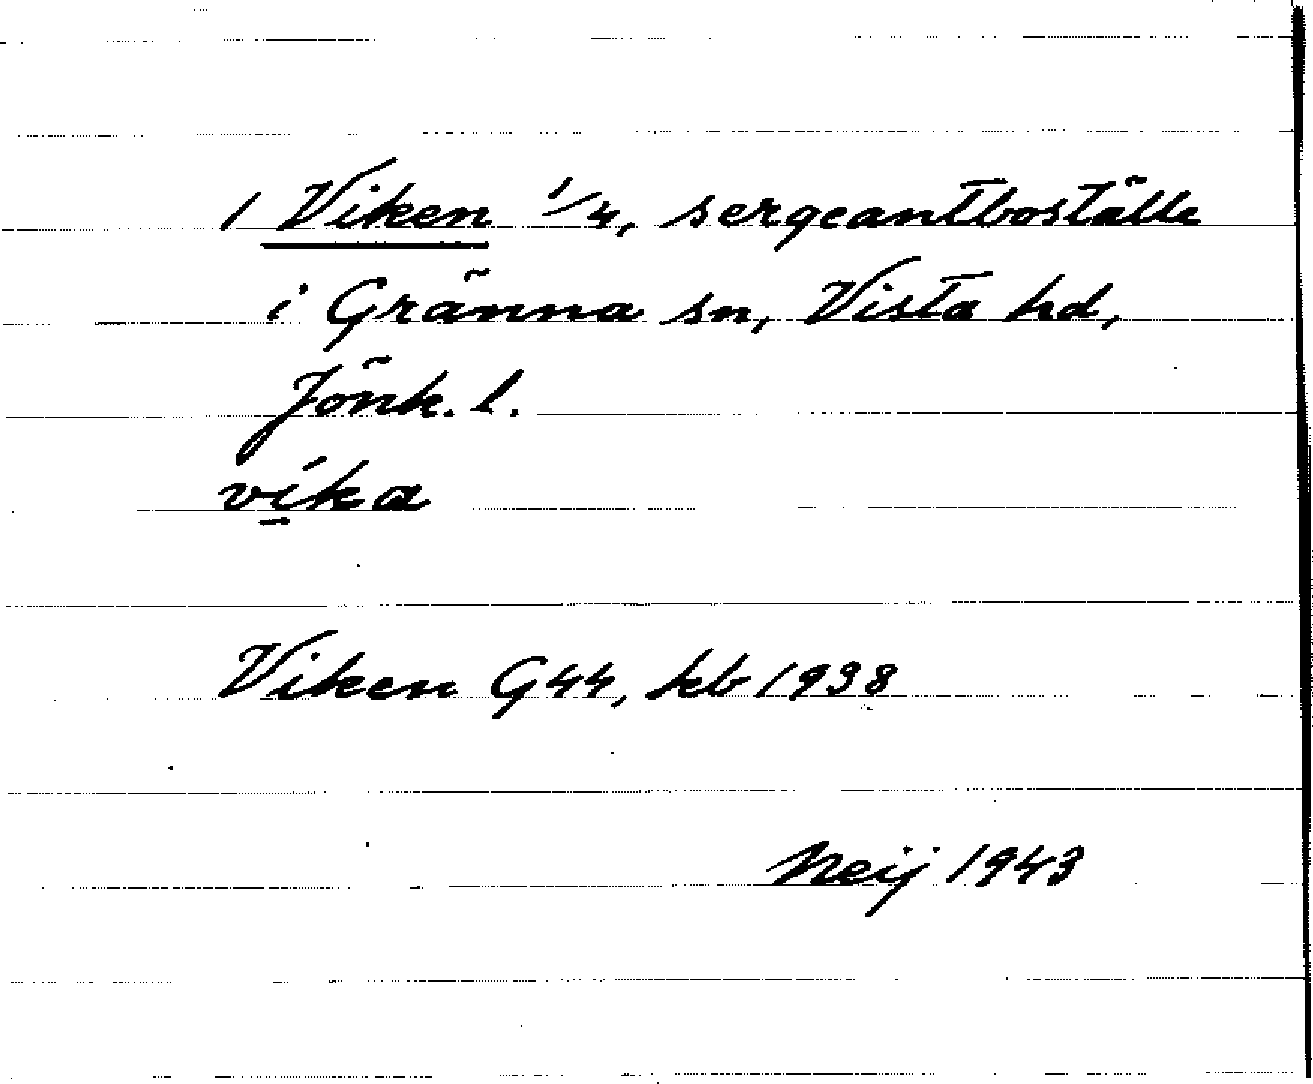 1 Viken 1/4, sergeantboställe
i Gränna sn, Vista hd,
Jönk. l.
víka
Viken G44, kb 1938
Neij 1943